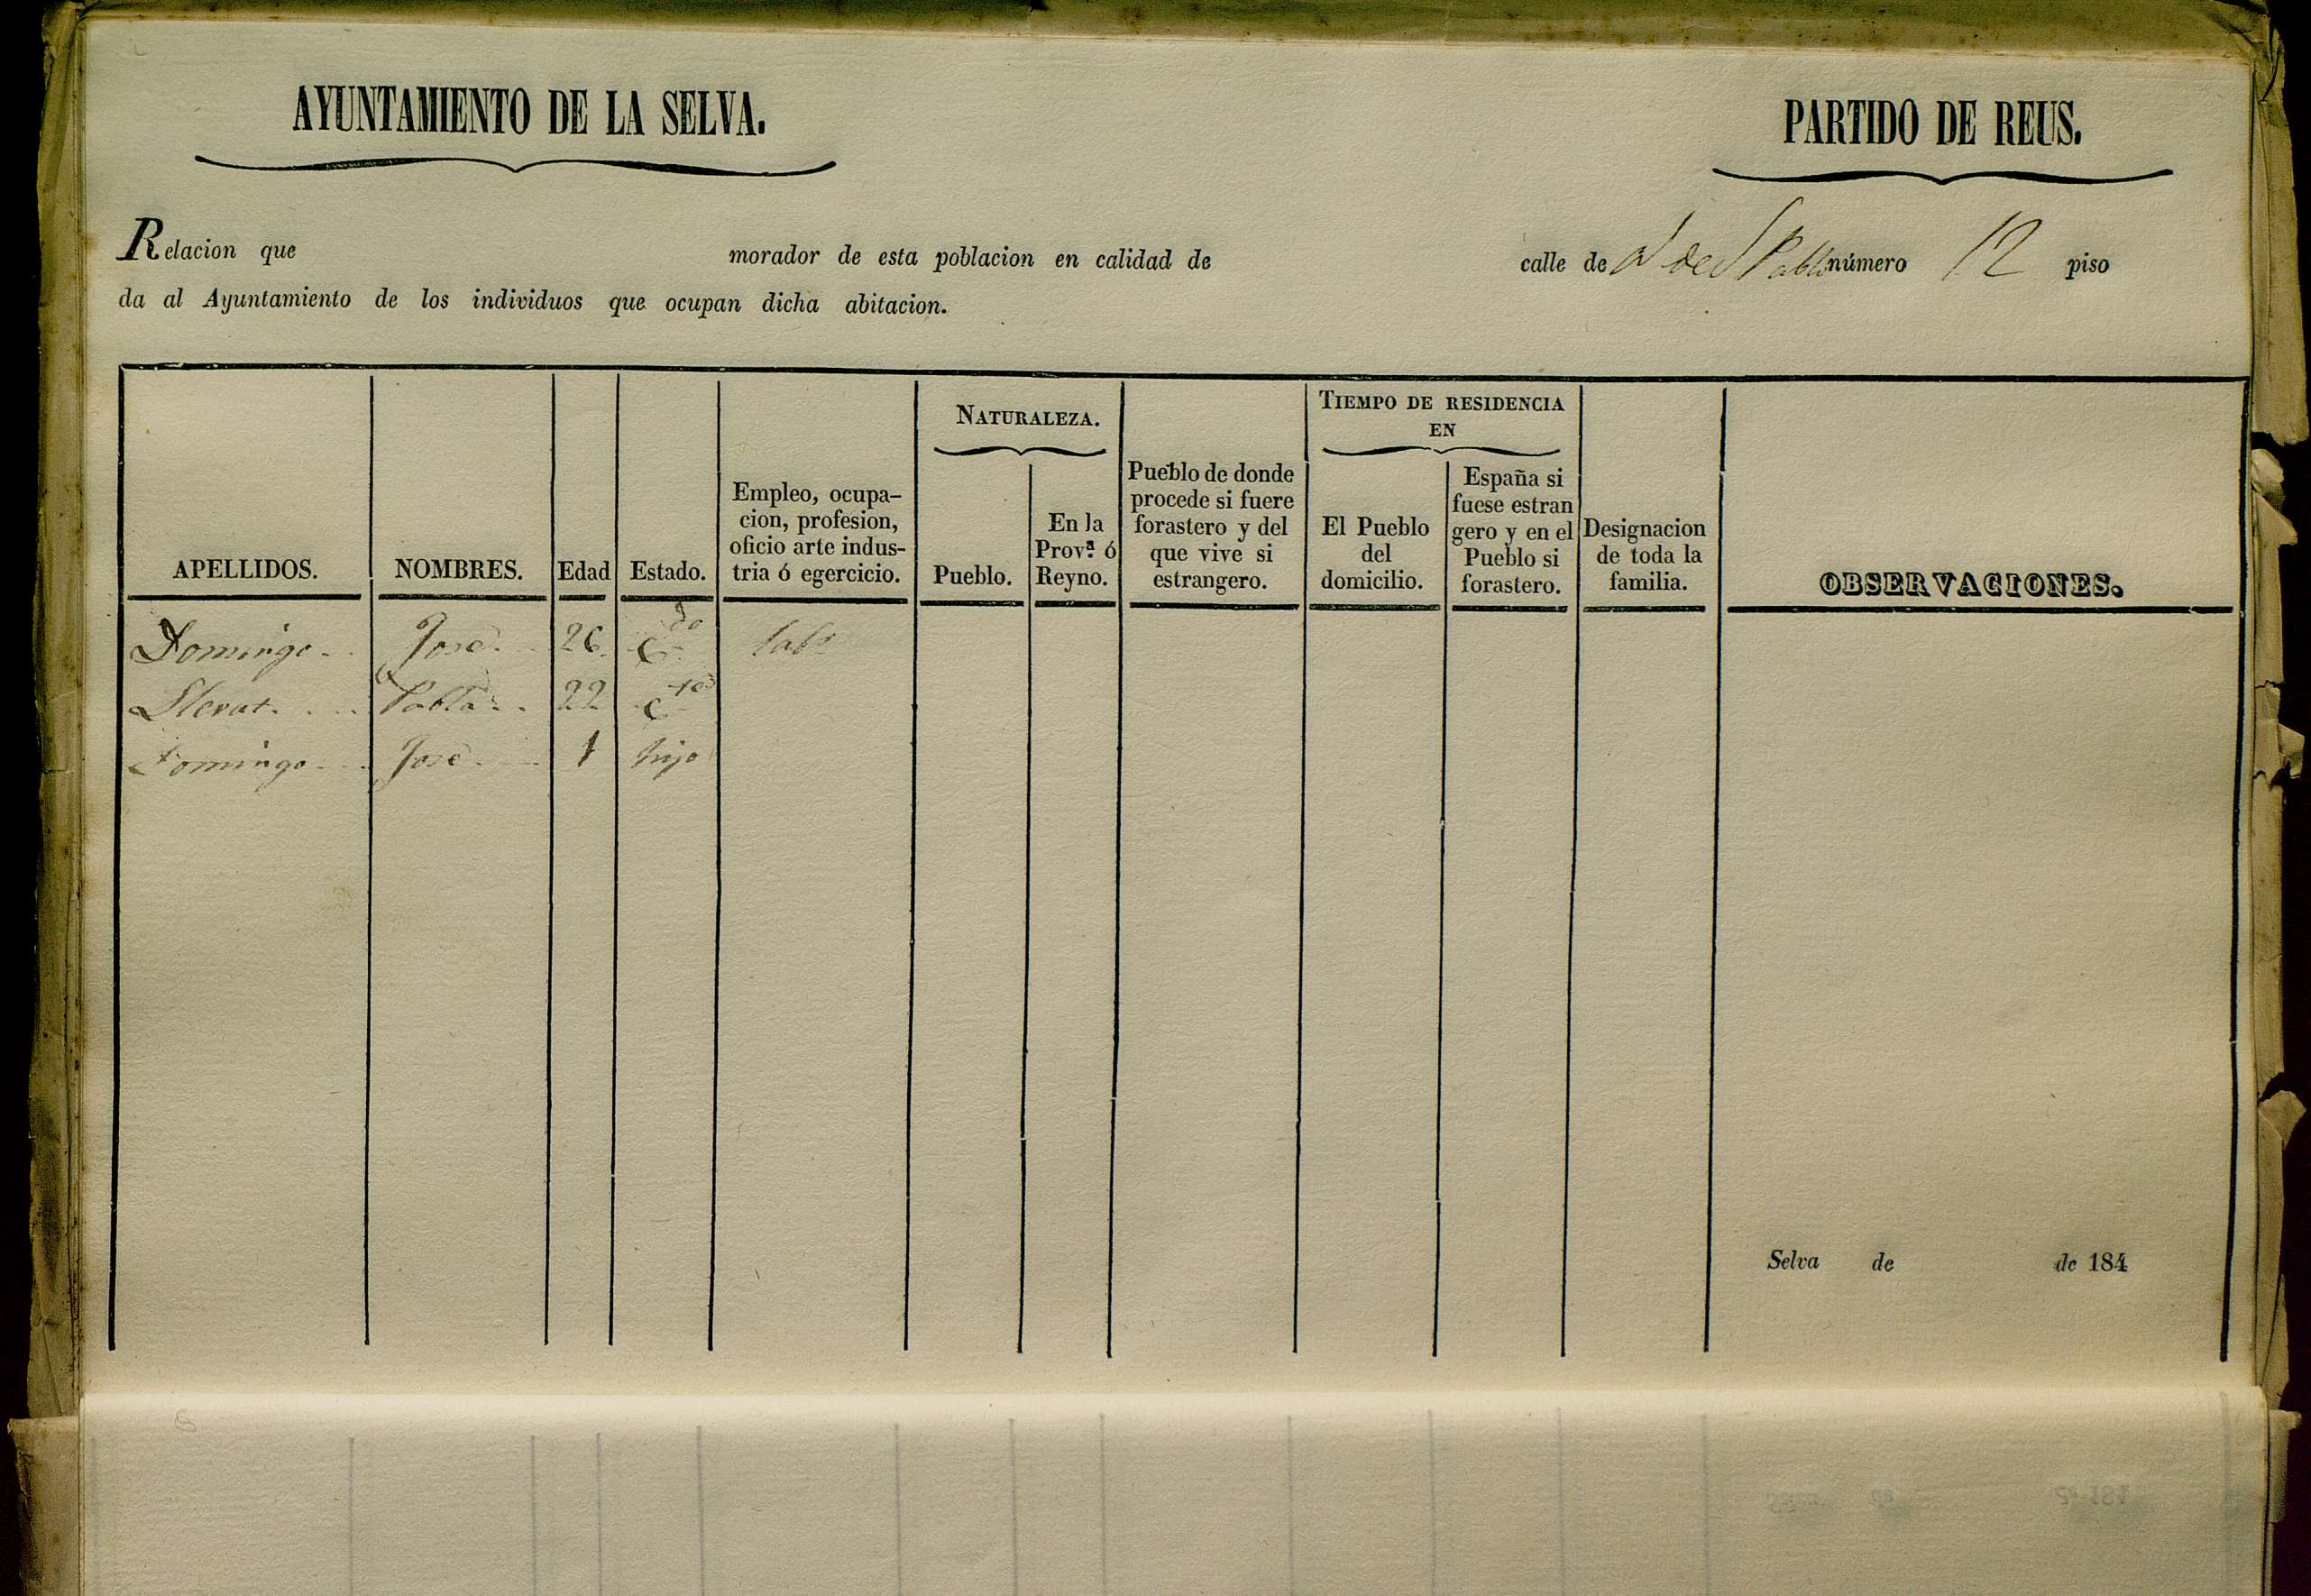 AYUNTAMIENTO DE LA SELVA.
PARTIDO DE REUS.
Relacion que morador de esta poblacion en calidad de calle de de S Pablo número 12 piso
da al Ayuntamiento de los individuos que ocupan dicha abitacion.
APELLIDOS.
NOMBRES.
Edad
Estado.
Empleo, ocupa-
cion, profesion,
oficio arte indus-
tria ó egercicio.
NATURALEZA.
Pueblo.
En la
Prov.ª ó
Reyno.
Pueblo de donde
procede si fuere
forastero y del
que vive si
estrangero.
TIEMPO DE RESIDENCIA
EN
El Pueblo
del
domicilio.
España si
fuese estran
gero y en el
Pueblo si
forastero.
Designacion
de toda la
familia.
OBSERVACIONES.
Domingo José 26 C.do lab.r
Llevat. Pabla 22 C.
Domingo José 1 hijo
Selva de de 184